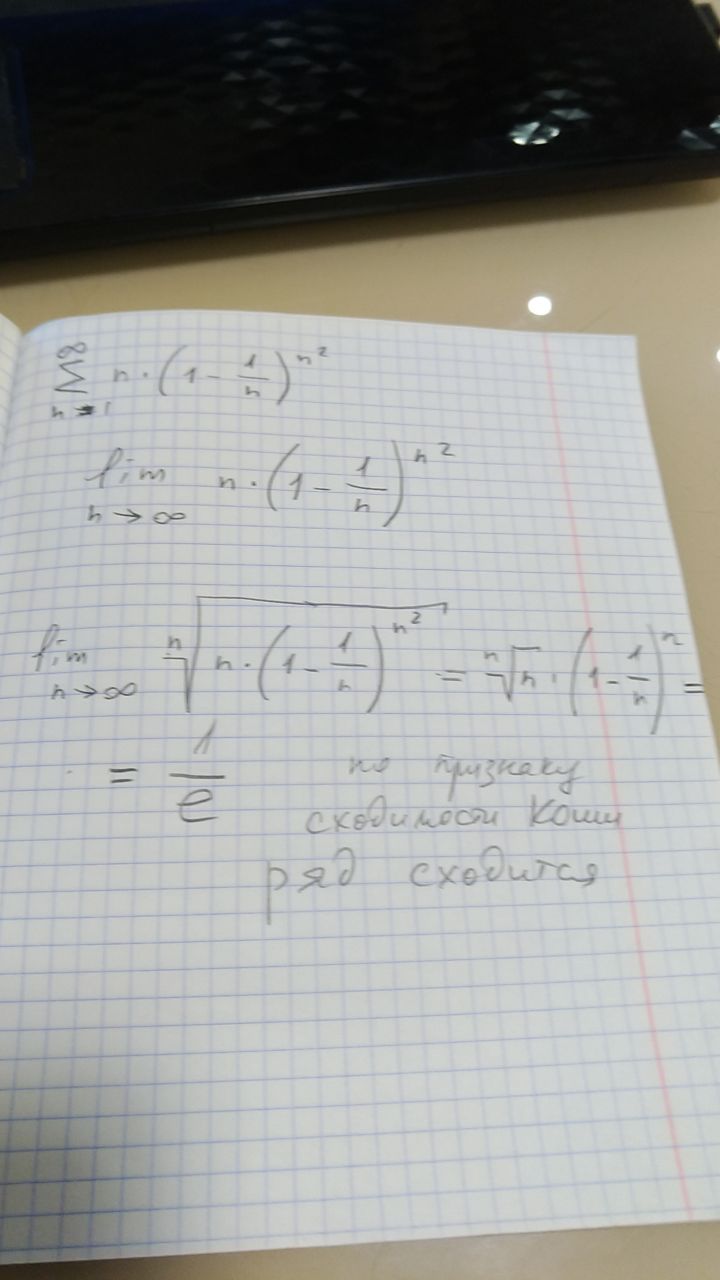 ∞
∑ n · (1 - 1/n)^n²
n=1
lim n · (1 - 1/n)^n²
n → ∞
lim ⁿ√(n · (1 - 1/n)^n²) = ⁿ√n · (1 - 1/n)^n =
n → ∞
= 1/e по признаку
сходимости Коши
ряд сходится